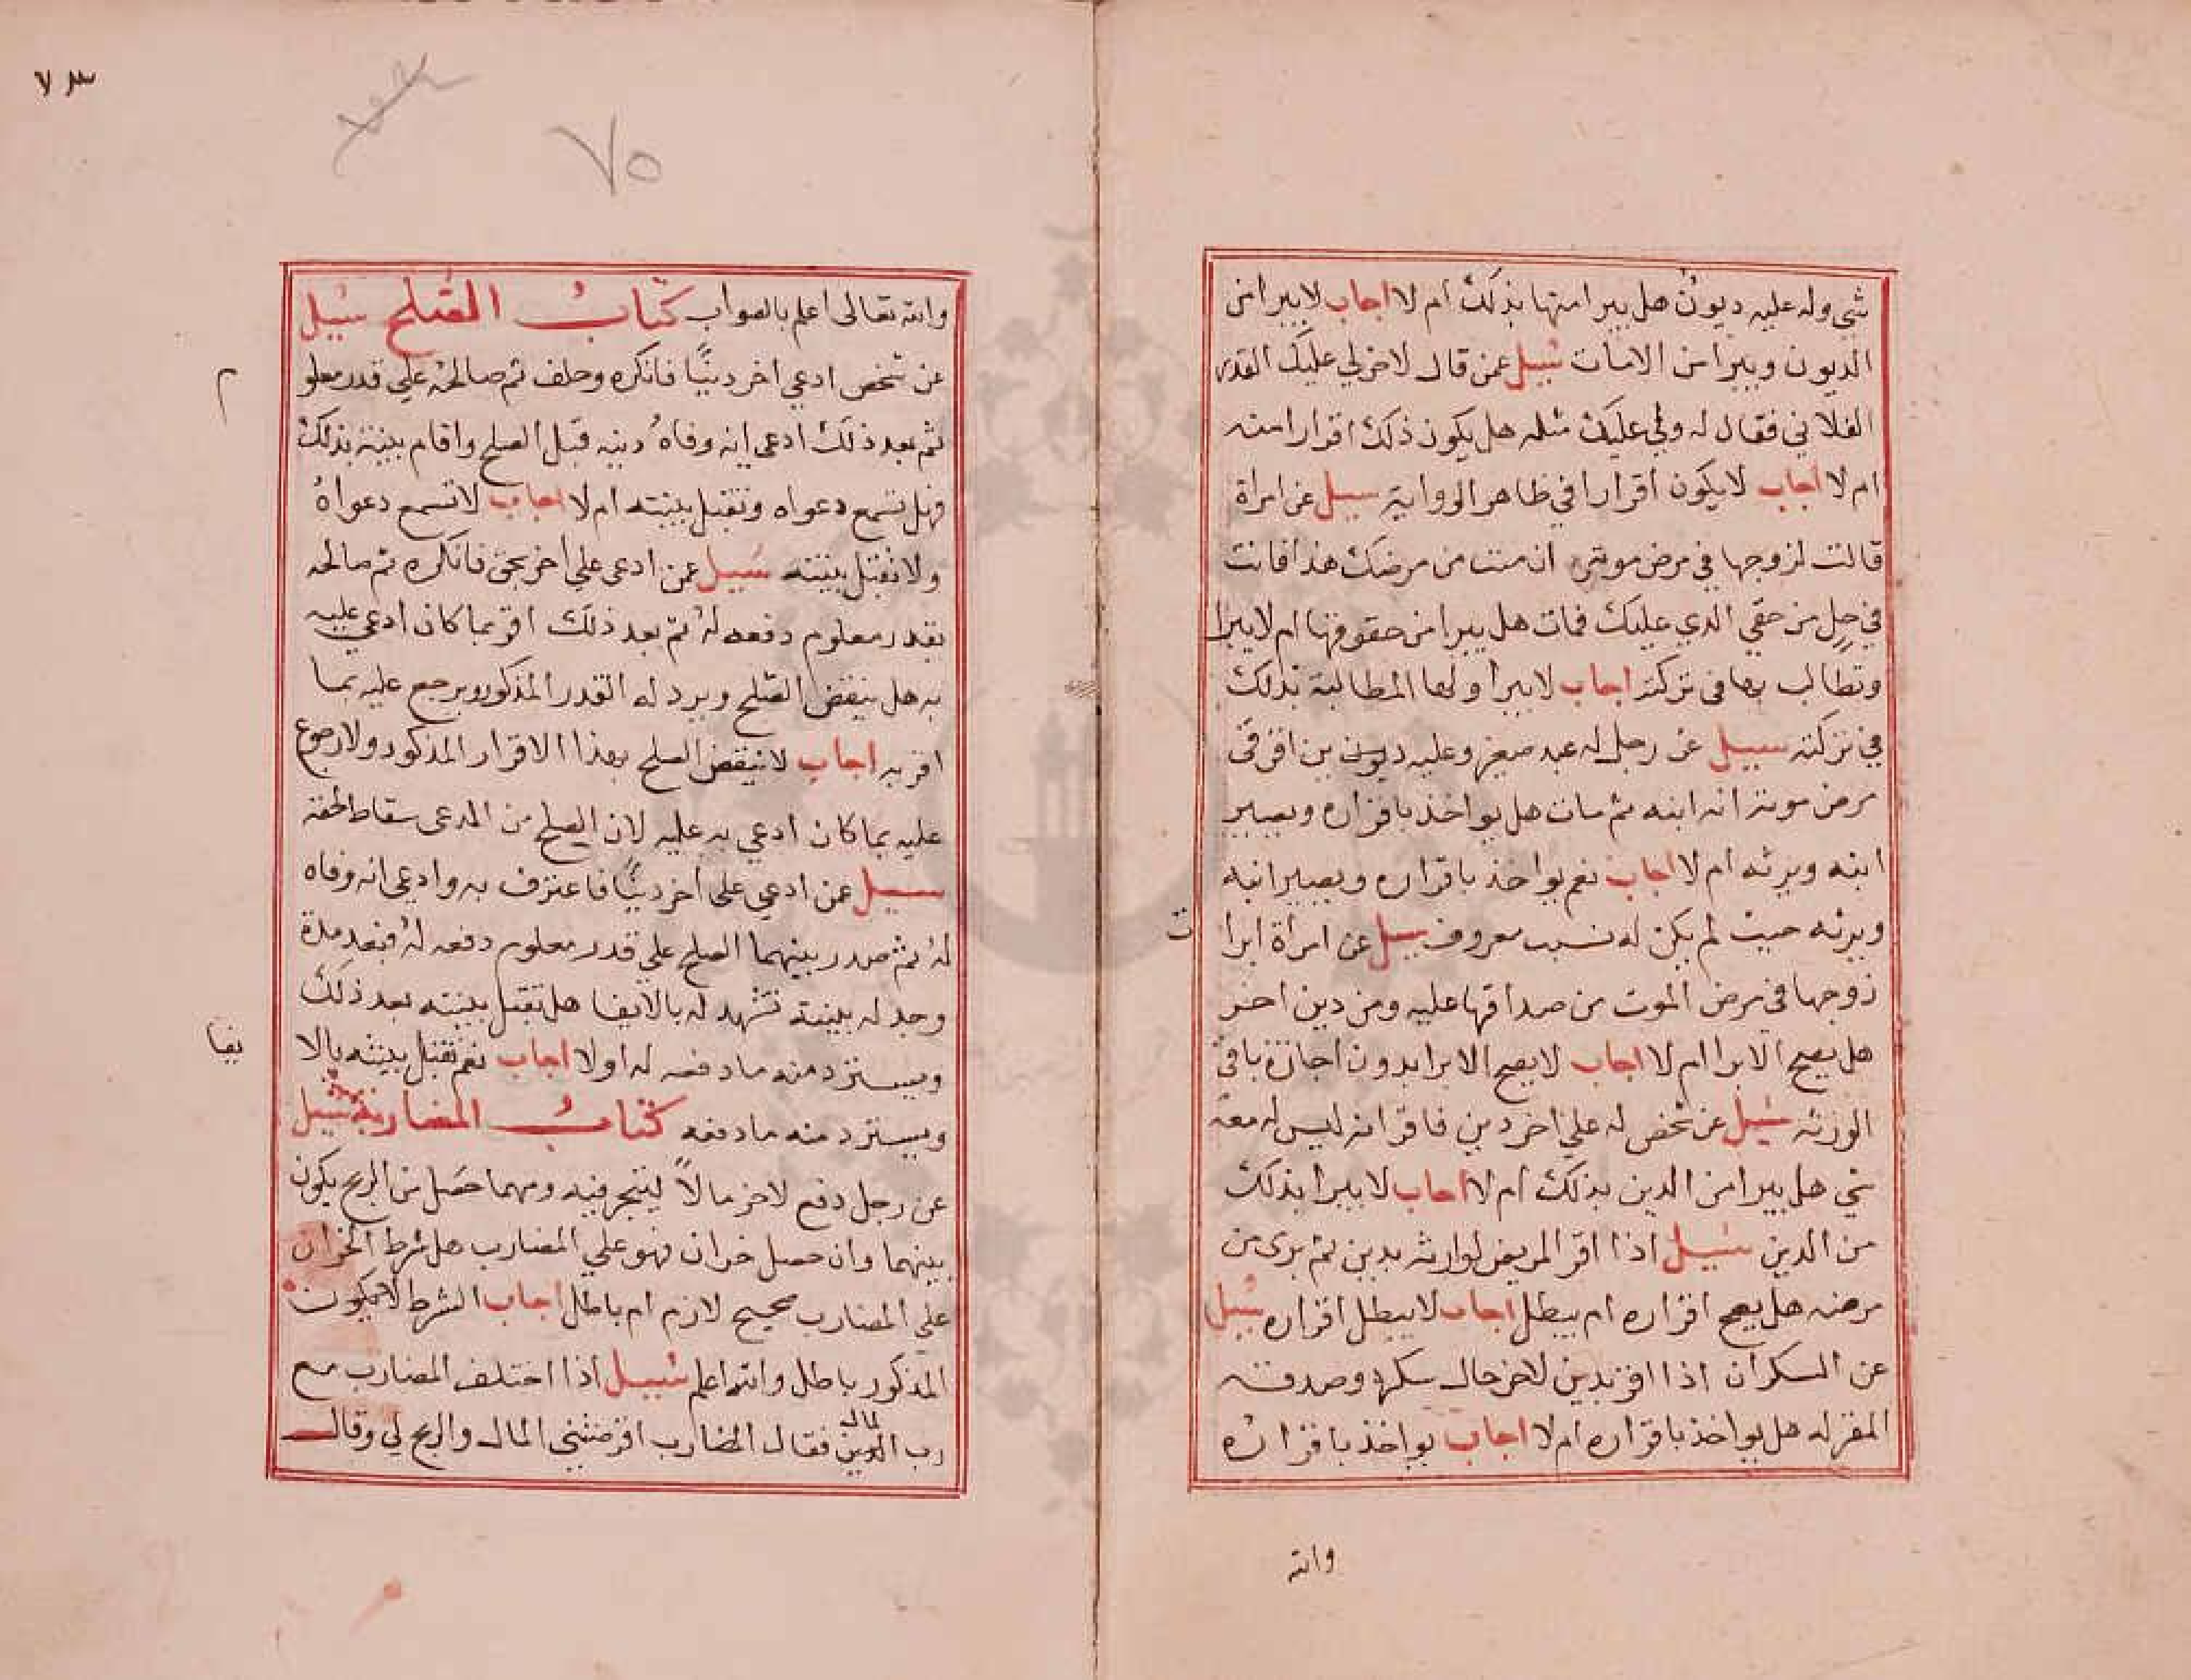 شي وله عليه ديون هل يبرا منها بذلك ام لا اجاب لا يبرا من
الديون ويبرا من الامانات سيل عمن قال لاخر لي عليك القدر
الفلاني فقال له ولي عليك مثله هل يكون ذلك اقرارا منه
ام لا اجاب لا يكون اقرارا في ظاهر الرواية سيل عن امراة
قالت لزوجها في مرض موتها ان مت من مرضك هذا فانت
في حل من حقي الذي عليك فمات هل يبرا من حقوقها ام لا يبرا
وتطالب بها في تركته اجاب لا يبرا ولها المطالبة بذلك
في تركته سيل عن رجل له عبد صغير وعليه ديون بين اقر في
مرض موته انه ابنه ثم مات هل يواخذ باقراره ويصير
ابنه ويرثه ام لا اجاب نعم يواخذ باقراره ويصير ابنه
ويرثه حيث لم يكن له نسب معروف سيل عن امراة ابرا
ت
زوجها في مرض الموت من صداقها عليه ومن دين اخر
هل يصح الابرا ام لا اجاب لا يصح الابرا بدون اجازة باقي
الورثه سيل عن شخص له علي اخر دين فاقر انه ليس له معه
شي هل يبرا من الدين بذلك ام لا اجاب لا يبرا بذلك
من الدين سيل اذا اقر المريض لوارثه بدين ثم بري من
مرضه هل يصح اقراره ام يبطل اجاب لا يبطل اقراره سيل
عن السكران اذا اقر بدين لاخر حال سكره وصدقه
المقر له هل يواخذ باقراره ام لا اجاب يواخذ باقراره
والله
٧٣
٧٥
والله تعالى اعلم بالصواب كتاب الصلح سيل
عن شخص ادعي اخر دينًا فانكره وحلف ثم صالحه علي قدر معلو
م
ثم بعد ذلك ادعى انه وفاه دينه قبل الصلح واقام بينة بذلك
فهل تسمع دعواه وتقبل بينته ام لا اجاب لا تسمع دعواه
ولا تقبل بينته سيل عمن ادعى علي اخر بحق فانكره ثم صالحه
بقدر معلوم دفعه له ثم بعد ذلك اقر بما كان ادعي عليه
به هل ينقض الصلح ويرد له القدر المذكور ويرجع عليه بما
اقر به اجاب لا ينقض الصلح بهذا الاقرار المذكور ولا رجوع
عليه بما كان ادعي به عليه لان الصلح من المدعى سقاط لحقه
سيل عمن ادعي على اخر دينًا فاعترف به وادعي انه وفاه
له ثم صدر بينهما الصلح علي قدر معلوم دفعه له فبعد مدة
وجد له بينة تشهد له بالايفا هل تقبل بينته بعد ذلك
ويسترد منه ما دفعه له اولا اجاب نعم تقبل بينته بالا
يفا
ويسترد منه ما دفعه كتاب المضاربة سيل
عن رجل دفع لاخر مالاً ليتجر فيه ومهما حصل من الربح يكون
بينهما وان حصل خسران فهو علي المضارب هل شرط الخسران
علي المضارب صحيح لازم ام باطل اجاب الشرط لا يكون
المذكور باطل والله اعلم سيل اذا اختلف المضارب مع
رب الدين فقال المضارب اقرضتني المال والربح لي وقال
المال